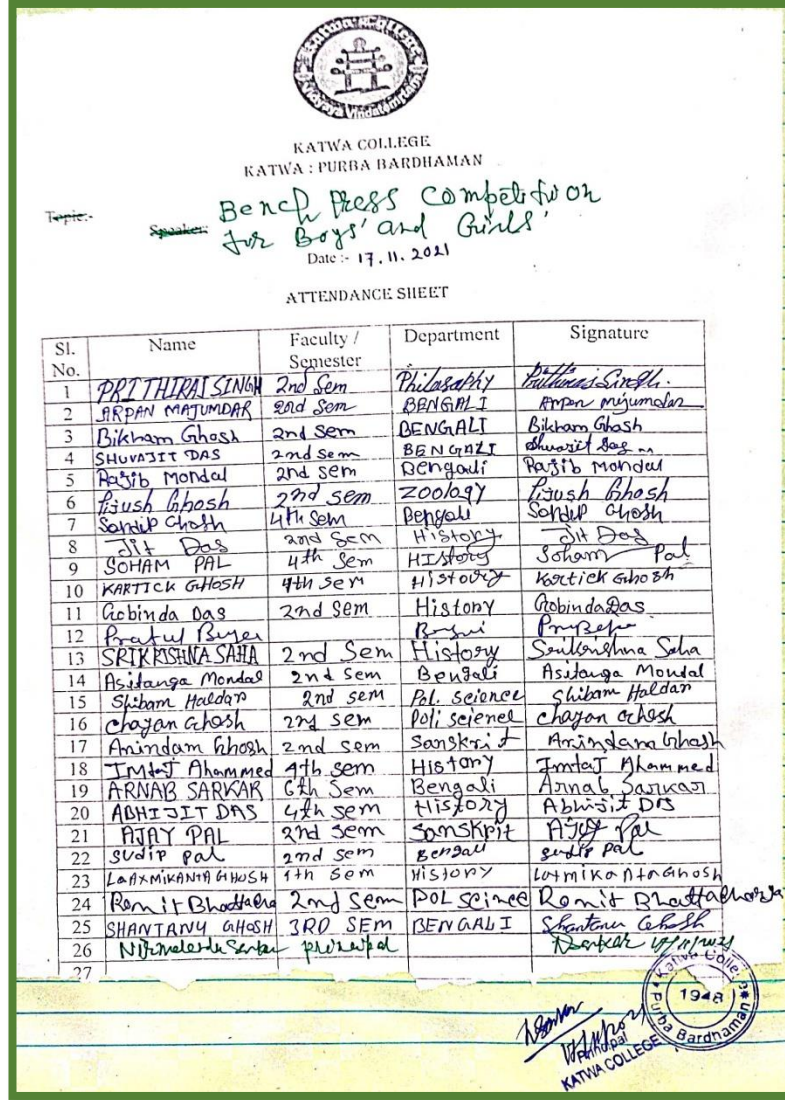 Katwa College
Vidyaya Vindatemritam
KATWA COLLEGE
KATWA : PURBA BARDHAMAN
Topic:- Bench Press Competition
Speaker: for Boys' and Girls'
Date :- 17.11.2021
ATTENDANCE SHEET
Sl. No. Name Faculty / Semester Department Signature
1 PRITHIRAJ SINGH 2nd Sem Philosophy Prithiraj Singh.
2 ARPAN MAJUMDAR 2nd Sem BENGALI Arpan Majumdar
3 Bikham Ghosh 2nd sem BENGALI Bikham Ghosh
4 SHUVAJIT DAS 2nd sem BENGALI Shuvajit Das
5 Rajib Mondal 2nd sem Bengali Rajib Mondal
6 Pijush Ghosh 2nd sem Zoology Pijush Ghosh
7 Sandip Ghosh 4th Sem Bengali Sandip Ghosh
8 Jit Das 2nd Sem History Jit Das
9 SOHAM PAL 4th Sem History Soham Pal
10 KARTICK GHOSH 4th sem History Kartick Ghosh
11 Gobinda Das 2nd Sem History Gobinda Das
12 Pratul
13 SRIKRISHNA SAHA 2nd Sem History Srikrishna Saha
14 Asitanga Mondal 2nd Sem Bengali Asitanga Mondal
15 Shibam Haldar 2nd sem Pol. Science Shibam Haldar
16 Chayan Ghosh 2nd sem Poli scienel Chayan Ghosh
17 Anindam Ghosh 2nd sem Sanskrit Anindam Ghosh
18 Imtaj Ahammed 4th sem History Imtaj Ahammed
19 ARNAB SARKAR 6th Sem Bengali Arnab Sarkar
20 ABHIJIT DAS 4th sem History Abhijit Das
21 AJAY PAL 2nd Sem Sanskrit Ajay Pal
22 Sudip pal 2nd sem Bengali Sudip pal
23 LAAXMIKANTA GHOSH 4th sem History Laxmikanta Ghosh
24 Romit Bhattacha 2nd Sem Pol Scince Romit Bhattacharya
25 SHANTANU GHOSH 3RD SEM BENGALI Shantanu Ghosh
26 Nirmalendu Sarkar principal NSarkar 17/11/2021
27
Katwa College
1948
Purba Bardhaman
NSarkar
Principal
KATWA COLLEGE